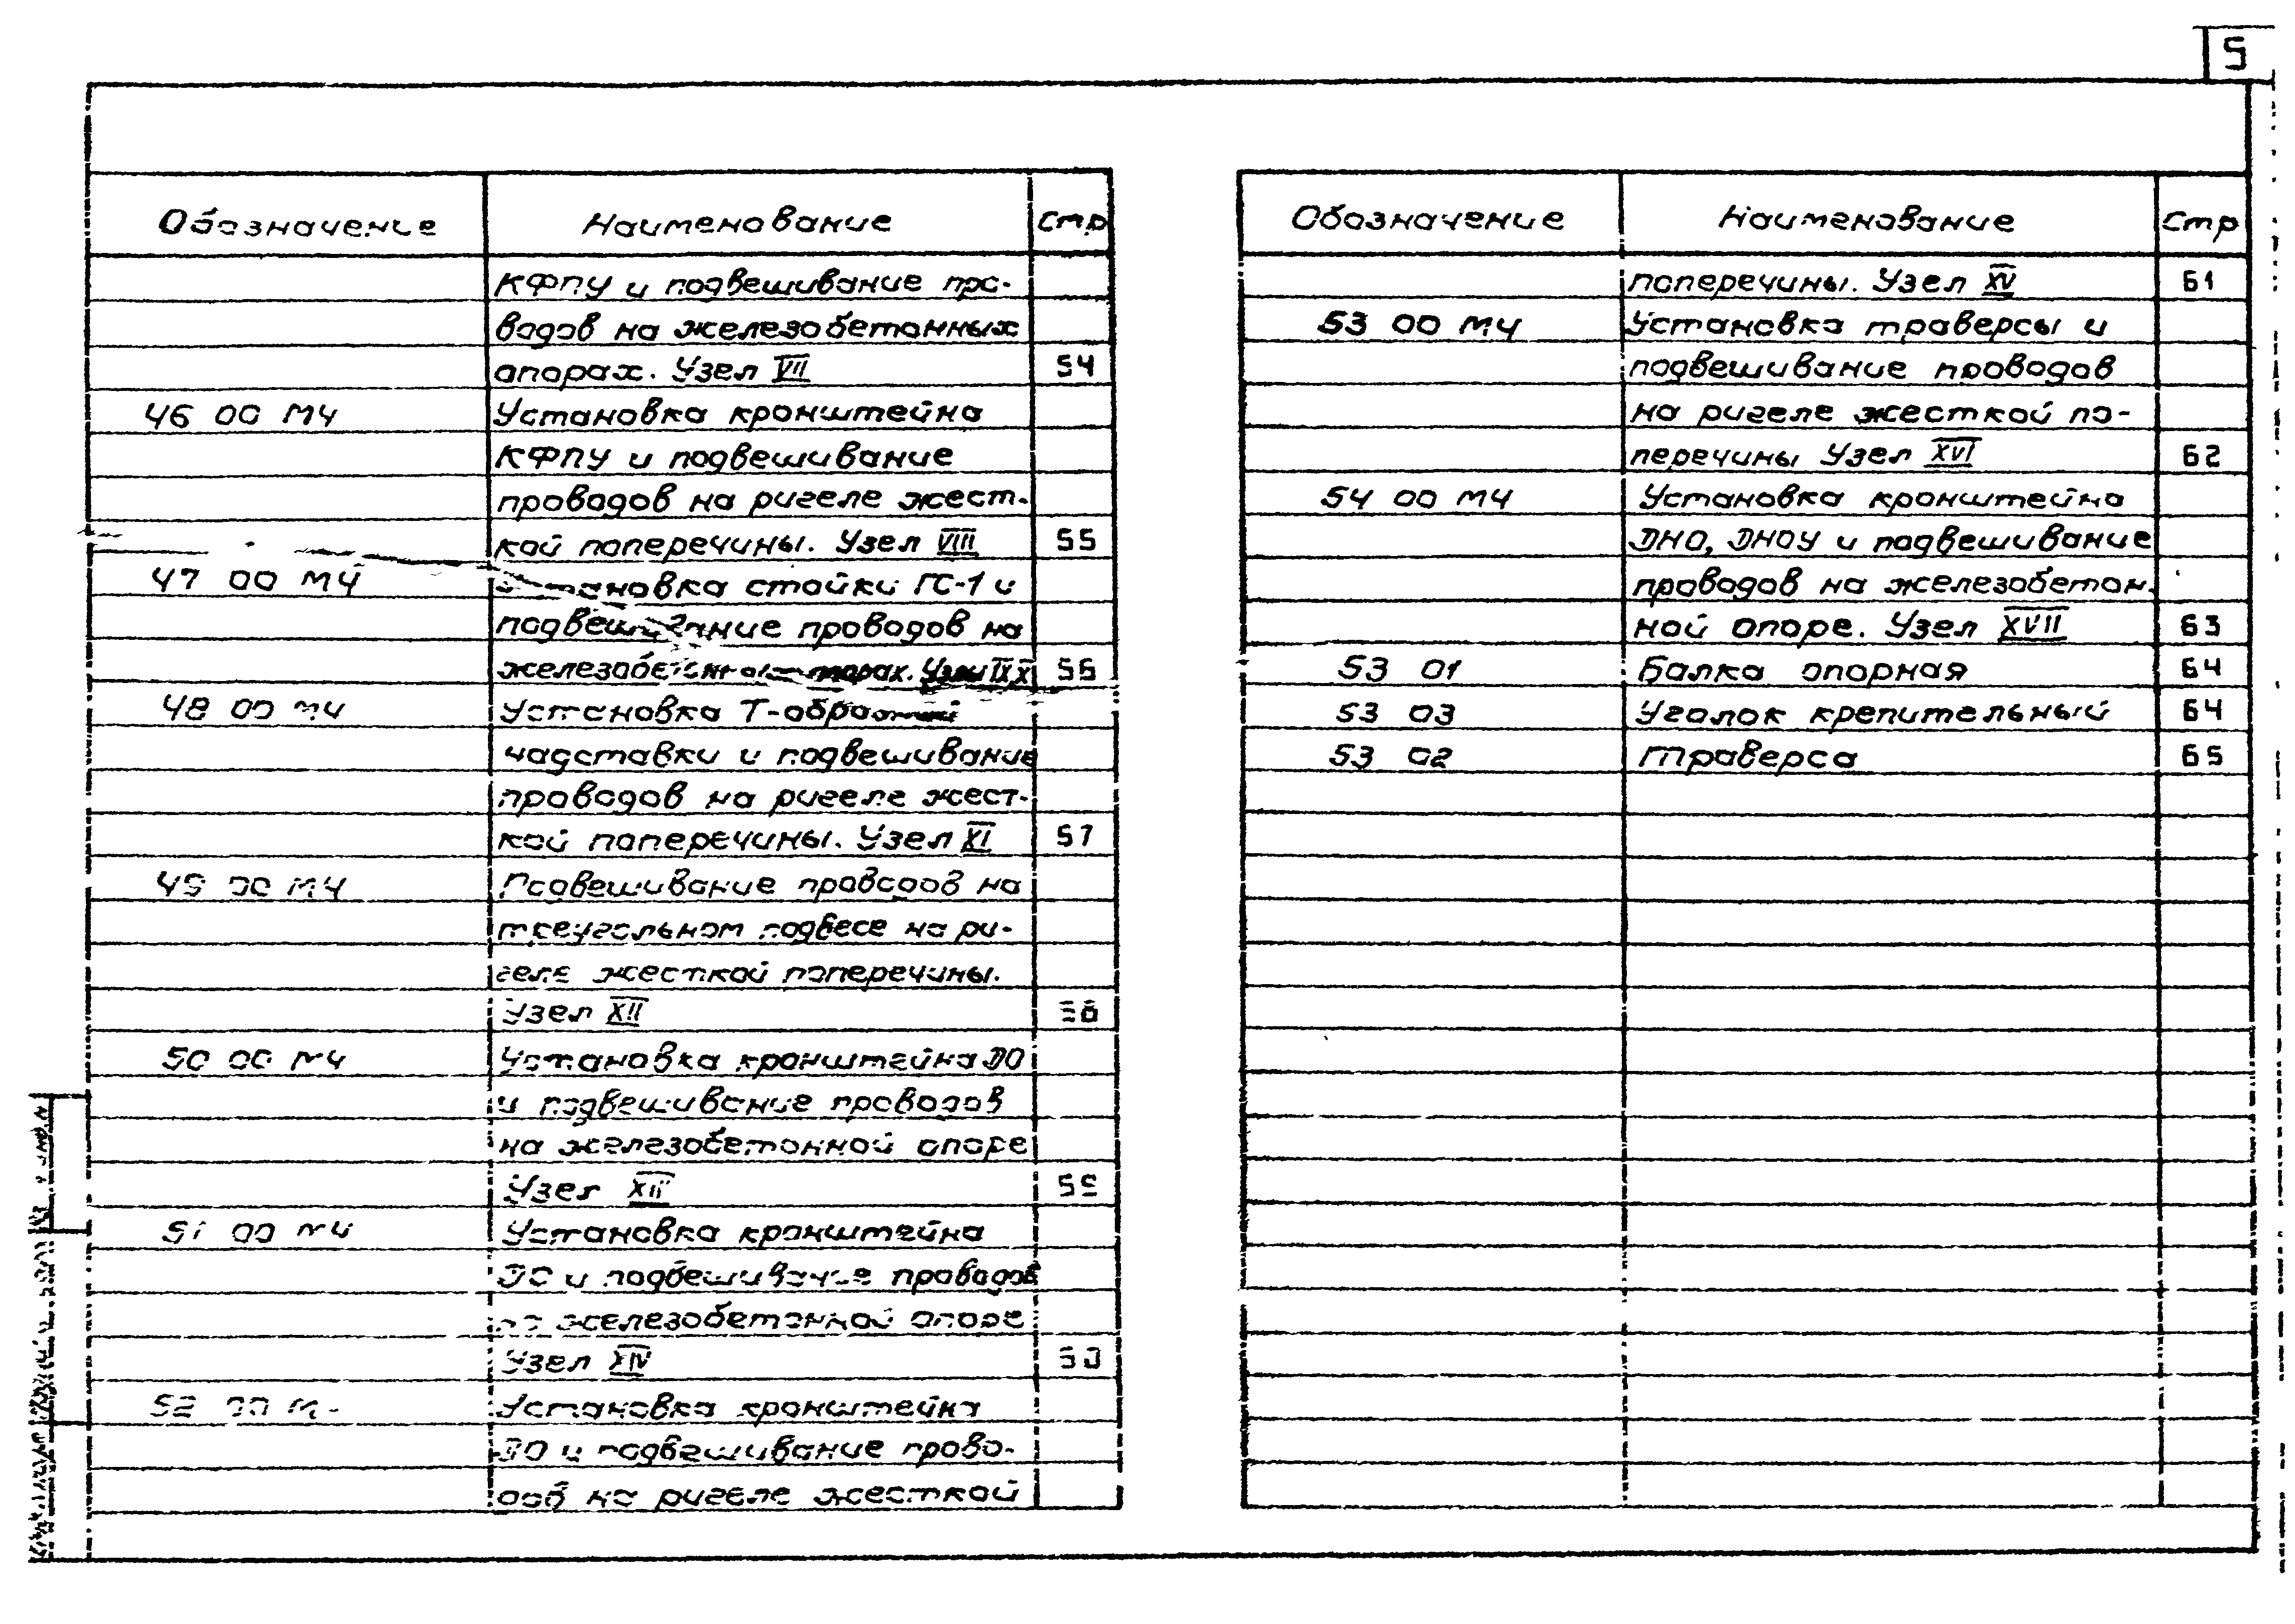 5
Обозначение Наименование Стр
КФПУ и подвешивание про-
водов на железобетонных
опорах. Узел VII 54
46 00 МЧ Установка кронштейна
КФПУ и подвешивание
проводов на ригеле жест-
кой поперечины. Узел VIII 55
47 00 МЧ Установка стойки ГС-1 и
подвешивание проводов на
железобетонных опорах. Узлы IX X 56
48 00 МЧ Установка Т-образной
надставки и подвешивание
проводов на ригеле жест-
кой поперечины. Узел XI 57
49 00 МЧ Подвешивание проводов на
треугольном подвесе на ри-
геле жесткой поперечины.
Узел XII 58
50 00 МЧ Установка кронштейна ДО
и подвешивание проводов
на железобетонной опоре
Узел XIII 59
51 00 МЧ Установка кронштейна
ДО и подвешивание проводов
на железобетонной опоре
Узел XIV 60
52 00 МЧ Установка кронштейна
ДО и подвешивание прово-
дов на ригеле жесткой
Обозначение Наименование Стр
поперечины. Узел XV 61
53 00 МЧ Установка траверсы и
подвешивание проводов
на ригеле жесткой по-
перечины Узел XVI 62
54 00 МЧ Установка кронштейна
ДНО, ДНОУ и подвешивание
проводов на железобетон-
ной опоре. Узел XVII 63
53 01 Балка опорная 64
53 03 Уголок крепительный 64
53 02 Траверса 65